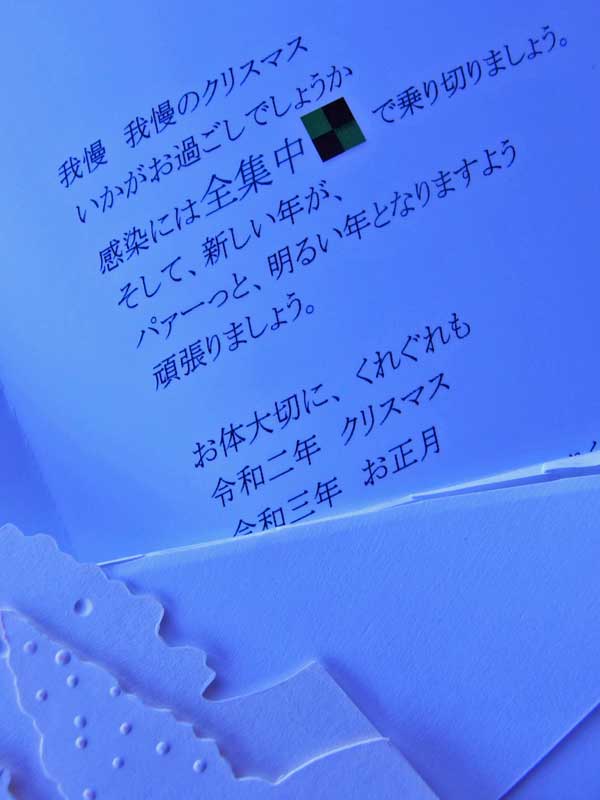 我慢 我慢のクリスマス
いかがお過ごしでしょうか
感染には全集中 で乗り切りましょう。
そして、新しい年が、
パァーっと、明るい年となりますよう
頑張りましょう。
お体大切に、くれぐれも
令和二年 クリスマス
令和三年 お正月